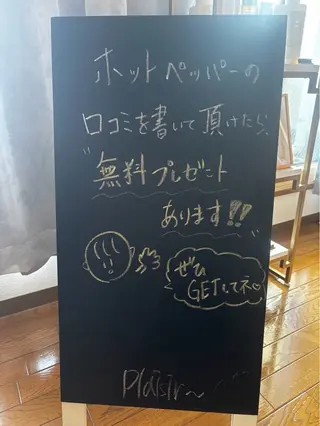 ホットペッパーの
口コミを書いて頂けたら、
"無料プレゼント
あります!!
ぜひ
GETしてネ♡